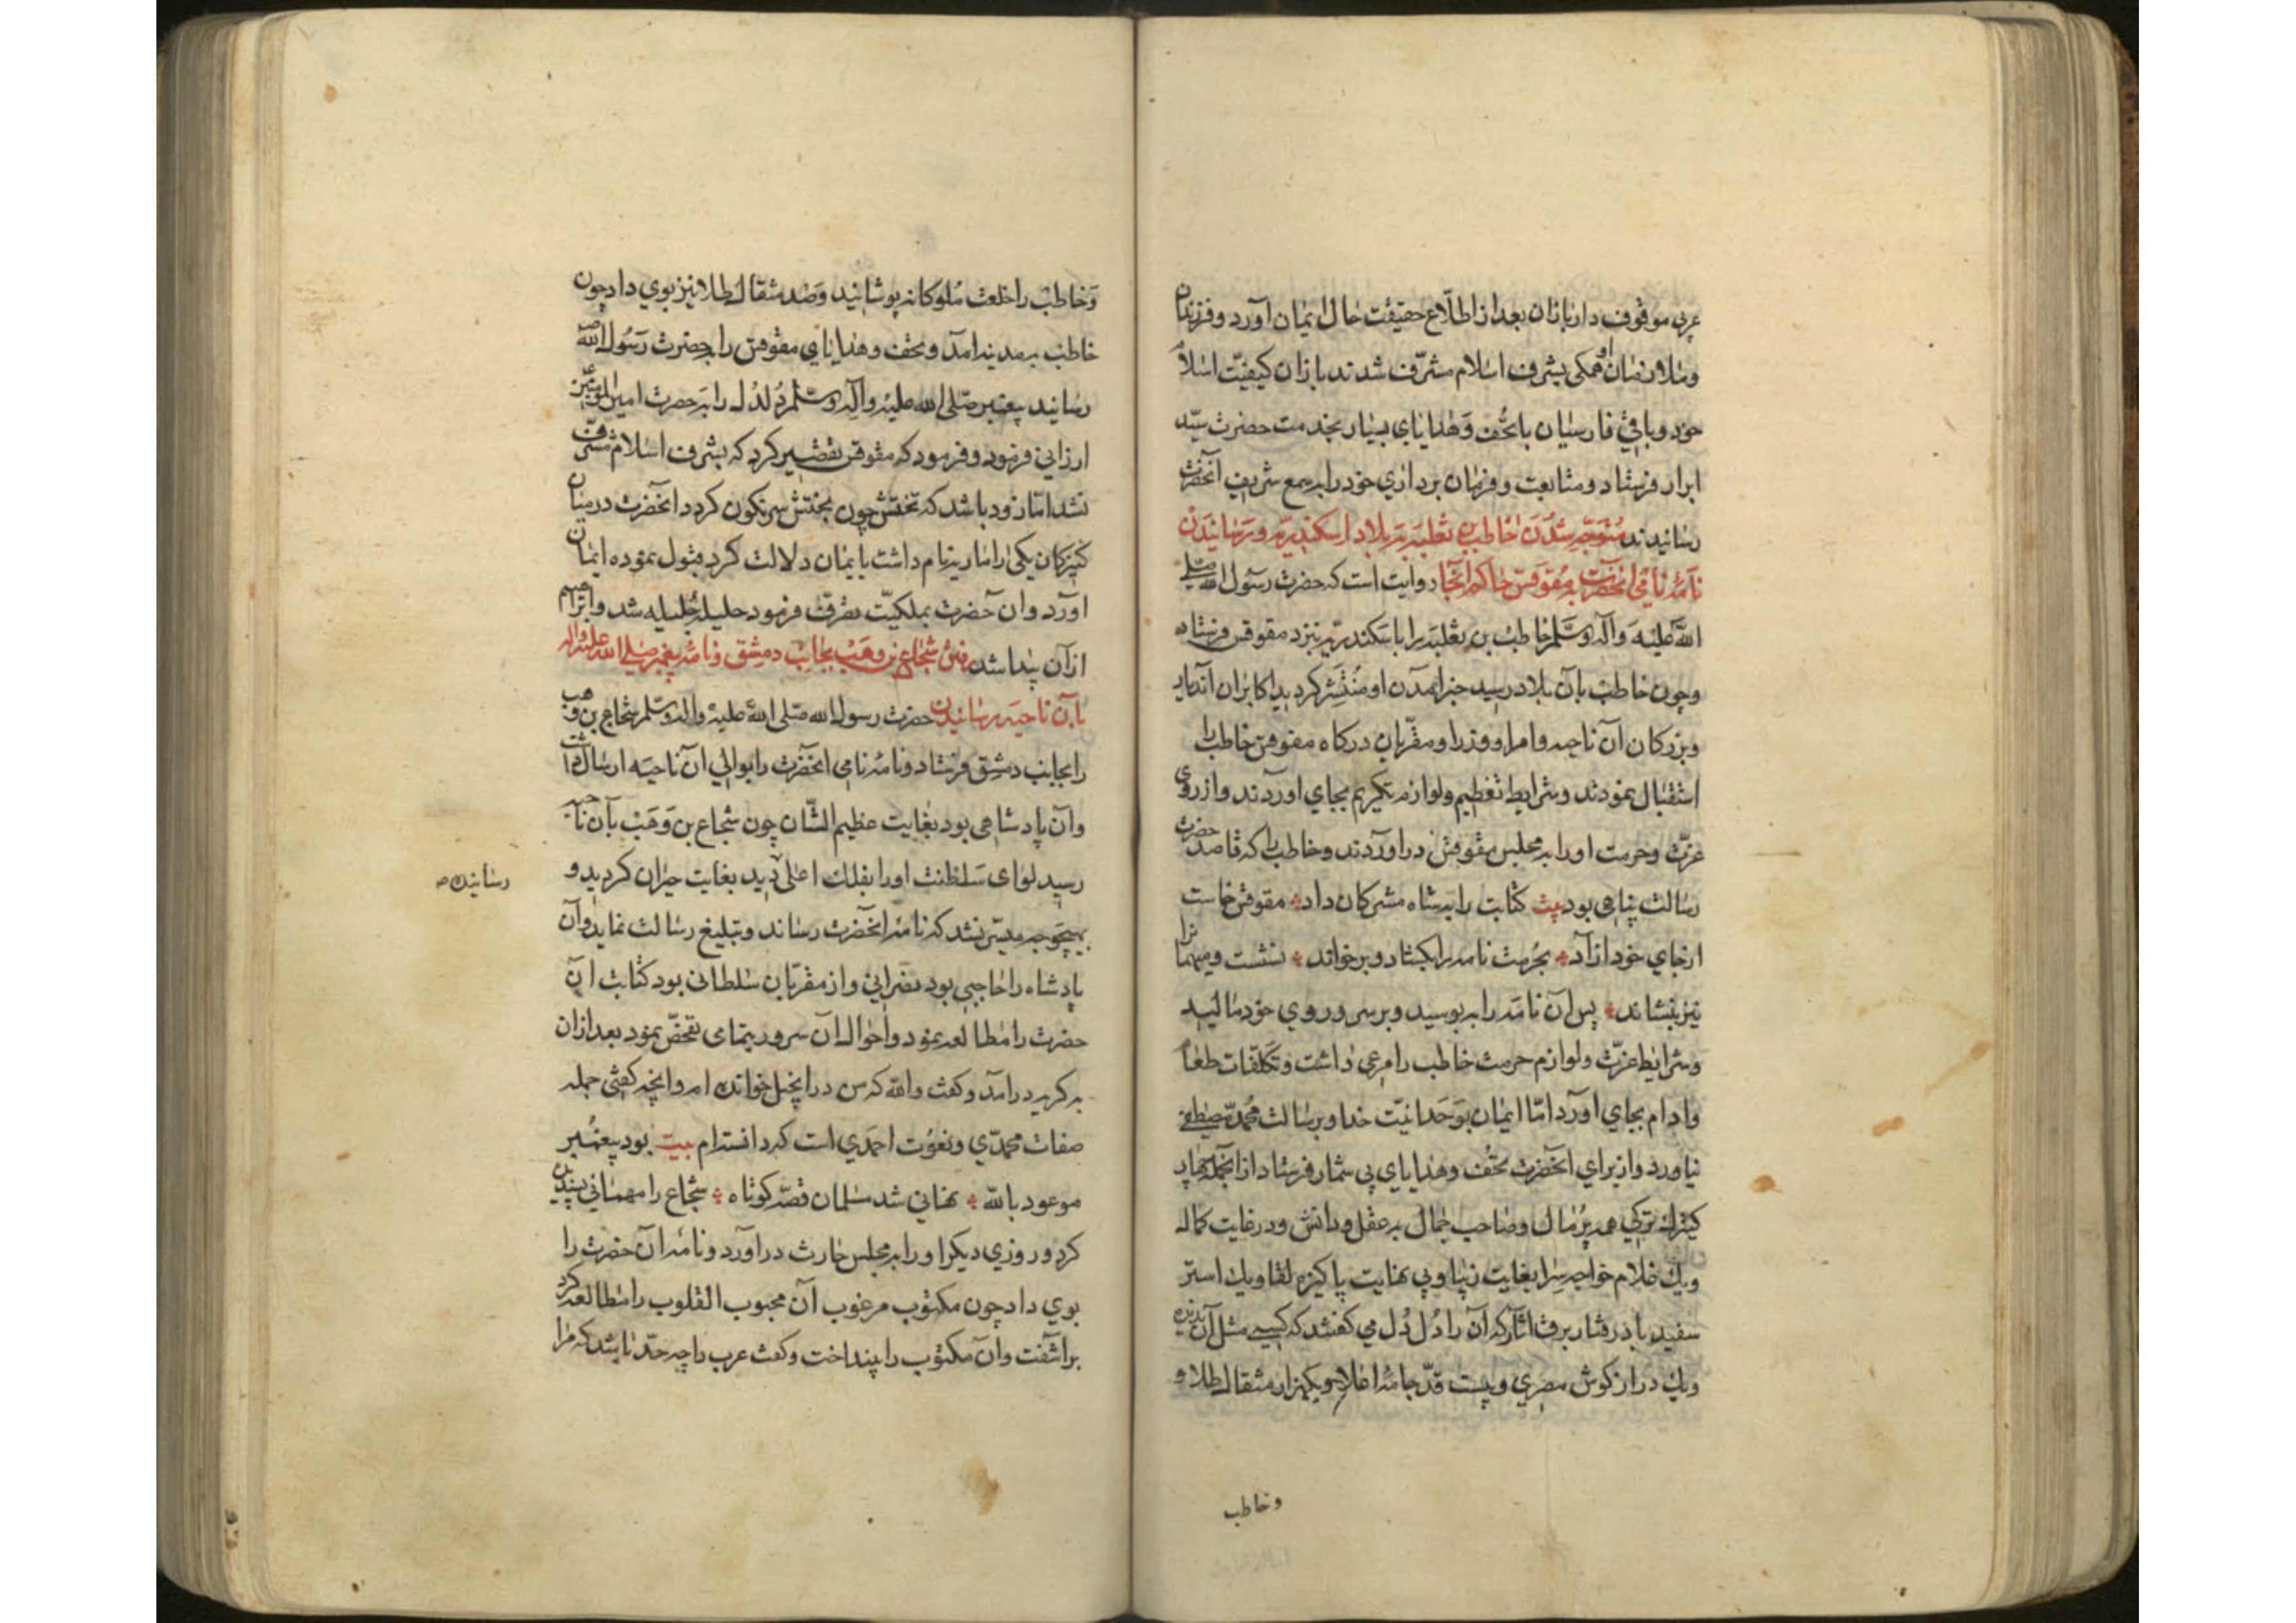 عربی موقوف دار باذان بعد از اطلاع حقیقت حال ایمان آورد و فرزندان
و ملازمان او همکی بشرف اسلام مشرّف شدند باذان کیفیّت اسلام
خود و باقی فارسیان با تحف و هدایای بسیار بخدمت حضرت سیّد
ابرار فرستاد و متابعت و فرمان برداری خود را بسمع شریف آنحضرت
رسانیدند متوجّه شدن خاطب بن ثعلبه به بلاد اسکندریّه و رسانیدن
نامهٔ نامی آنحضرت به مقوقس حاکم آنجا روایت است که حضرت رسول الله صلی
الله علیه و آله وسلم خاطب بن ثعلبه را باسکندریّه نزد مقوقس فرستاد
و چون خاطب بآن بلاد رسید خبر آمدن او منتشر کردید اکابران آندیار
و بزرکان آن ناحیه و امرا و وزرا و مقرّبان درکاه مقوقس خاطب را
استقبال نمودند و شرایط تعظیم و لوازم تکریم بجای آوردند و از روی
عزّت و حرمت او را به مجلس مقوقس در آوردند و خاطب را که قاصد حضرت
رسالت پناهی بود بیت کتابت را به شاه مشرکان داد مقوقس خاست
از جای خود ازاد بحرمت نامه را بکشاد و برخواند نشست و میهمانرا
نیز بنشاند پس آن نامه را ببوسید و بر سر و روی خود مالید
و شرایط عزّت و لوازم حرمت خاطب را مرعی داشت و تکلفات طعام
وادام بجای اورد امّا ایمان بوحدانیّت خدا و برسالت محمّد مصطفی
نیاورد و از برای آنحضرت تحف و هدایای بی شمار فرستاد از انجمله چهار
کنیزک ترکی همه پر مال و صاحب جمال به عقل و دانش و در غایت کمال
و یک غلام خواجه سرا بغایت زیبا و بی نهایت پاکیزه لقا و یک استر
سفید باد رفتار برق آثار که آن را دلدل می کفتند که کسی مثل آن ندیده
و یک دراز کوش مصری و بیست قدّ جامهٔ اعلا و یکهزار مثقال طلا و
و خاطب
و خاطب را خلعت ملوکانه پوشانید و صد مثقال طلا نیز بوی داد چون
خاطب بمدینه امد و تحف و هدایای مقوقس را بحضرت رسول الله
رسانید پیغمبر صلی الله علیه وآله وسلم دلدل را به حضرت امیر المؤمنین
ارزانی فرمود و فرمود که مقوقس تقصیر کرد که بشرف اسلام مشرّف
نشد امّا زود باشد که تختش چون بختش سرنکون کردد انحضرت در میان
کنیزکان یکی را ماریه نام داشت بایمان دلالت کرد قبول نموده ایمان
اورد و ان حضرت بملکیّت تصرّف فرمود حلیلهٔ جلیله شد و ابراهیم
ازآن پیدا شد رفتن شجاع بن وهب بجانب دمشق و نامهٔ پیغمبر صلی الله علیه واله
بآن ناحیه رسانیدن حضرت رسول الله صلی الله علیه واله وسلم شجاع بن وهب
را بجانب دمشق فرستاد و نامهٔ نامی انحضرت را بوالی آن ناحیه ارسال داشت
وآن پادشاهی بود بغایت عظیم الشّان چون شجاع بن وهب بآن ناحیه
رسید لوای سلطنت اورا بفلک اعلی دید بغایت حیران کردید و
بهیچوجه میسّر نشد که نامهٔ انحضرت رساند و تبلیغ رسالت نماید وآن
پادشاه را حاجبی بود نصرانی و از مقرّبان سلطانی بود کتابت ان
حضرت را مطالعه نمود و احوال ان سرور بتمامی تفحّص نمود بعد ازان
به کریه درامد و کفت والله که من در انجیل خوانده ام و انچه کفتی جمله
صفات محمّدی و نعوت احمدی است که دانسته ام بیت بود پیغمبر
موعود بالله نهانی شد مسلمان قصّه کوتاه شجاع را مهمانی پسندیده
کرد و روزی دیکر او را به مجلس حارث در اورد و نامهٔ ان حضرت را
بوی داد چون مکتوب مرغوب آن محبوب القلوب را مطالعه کرد
براشفت و ان مکتوب را بینداخت و کفت عرب را چه حدّ باشد که مرا
رسانیده